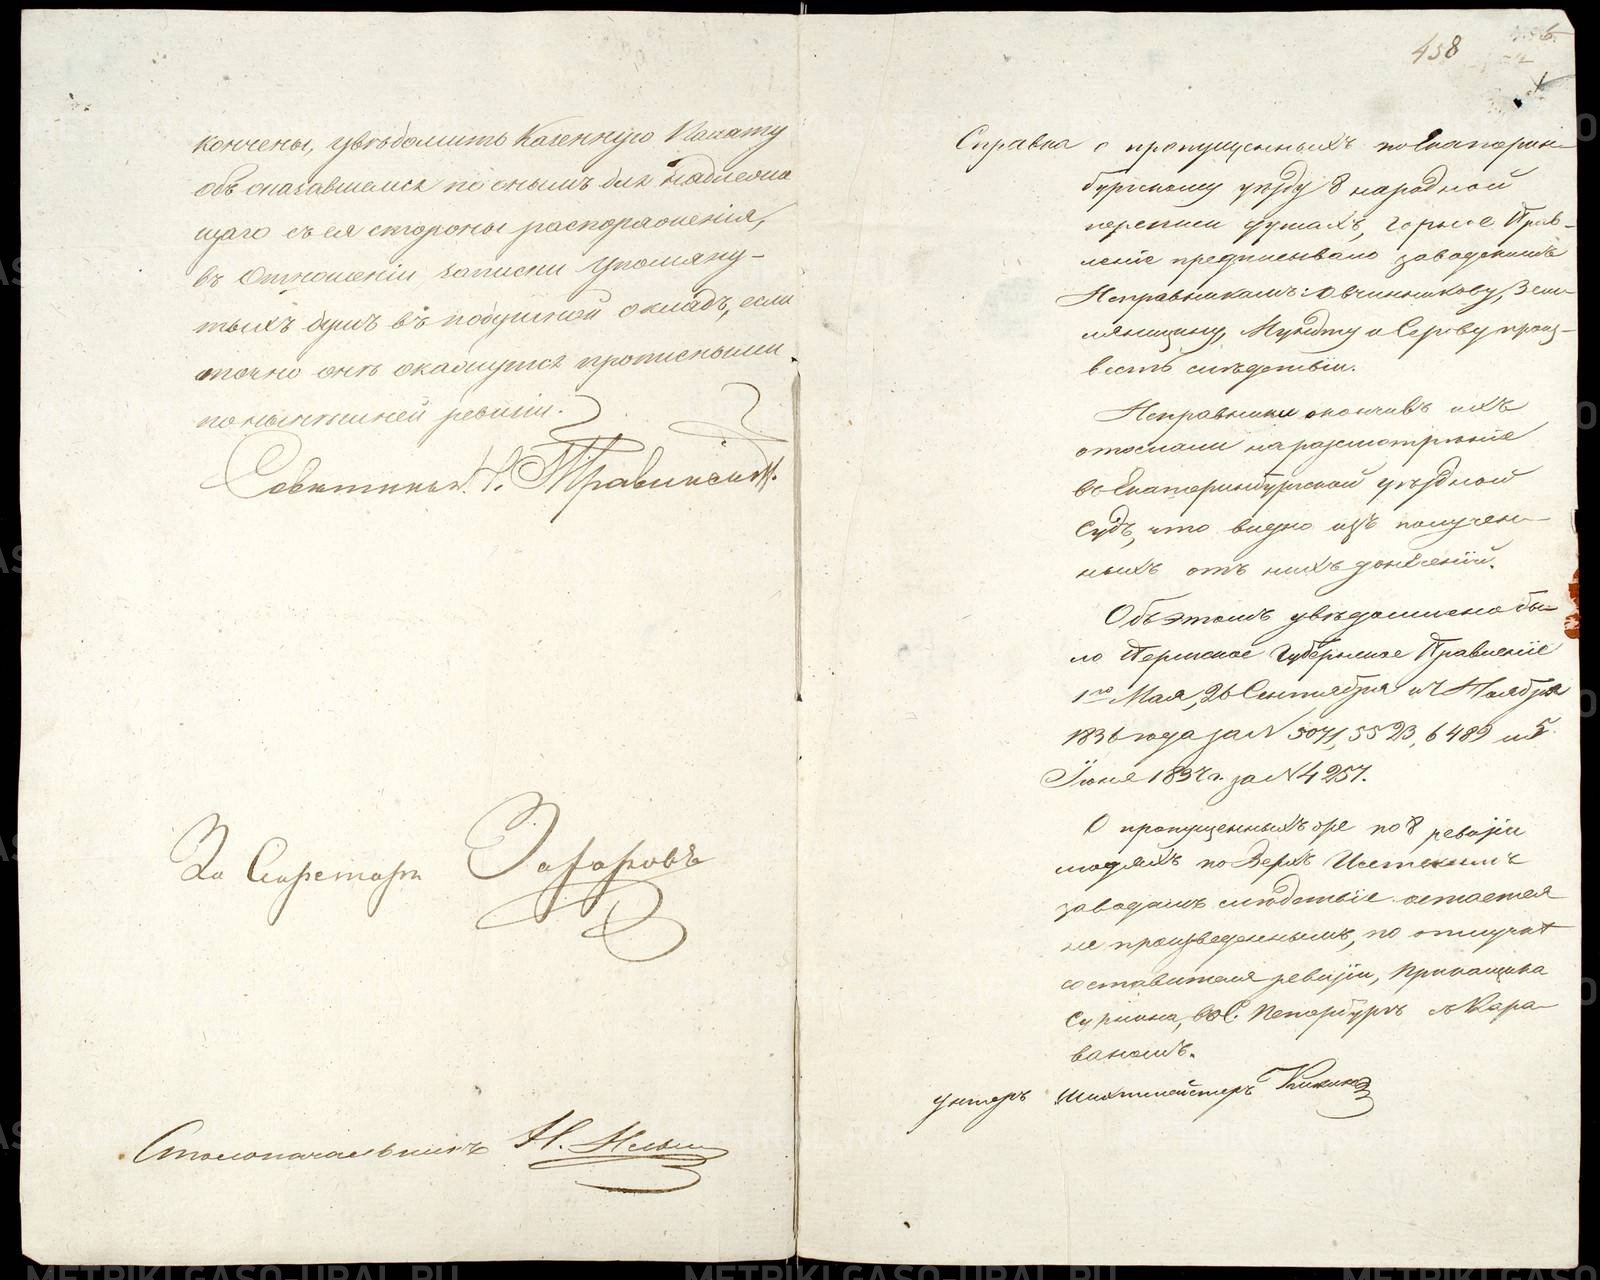 кончены, увѣдомить Казенную Палату
объ оказавшемся по онымъ для надлежа
щаго съ ея стороны распоряженія,
въ отношеніи записки упомяну-
тыхъ душъ въ подушной окладъ, если
точно онѣ окажутся прописными
по нынѣшней ревизіи.
Совѣтникъ
За Секретаря Захаровъ
Столоначальникъ Н.
458
Справка о пропущенныхъ по Екатерин-
бургскому уѣзду 8 народной
переписи душахъ, Горное Прав-
леніе предписывало заводскимъ
Исправникамъ: Овчинникову, Зем-
ляницыну, и Серову произ-
весть слѣдствіи.
Исправники окончивъ ихъ
отослали на разсмотрѣніе
въ Екатеринбургской уѣздной
Судъ, что видно изъ получен-
ныхъ отъ нихъ донесеній.
Объ этомъ увѣдомлено бы-
ло Пермское Губернское Правленіе
1го Мая, 26 Сентября и 7 Ноября
1836 года за N 3071, 5523, 6489 и 5
Іюня 1837 г. за N 4257.
О пропущенныхъ же по 8 ревизіи
людяхъ по Верхъ Исетскимъ
заводамъ слѣдствіе остается
не произведеннымъ, по отлучкѣ
составителя ревизіи, Прикащика
въ С. Петербургъ съ Кара-
ваномъ.
унтеръ Шихтмейстеръ